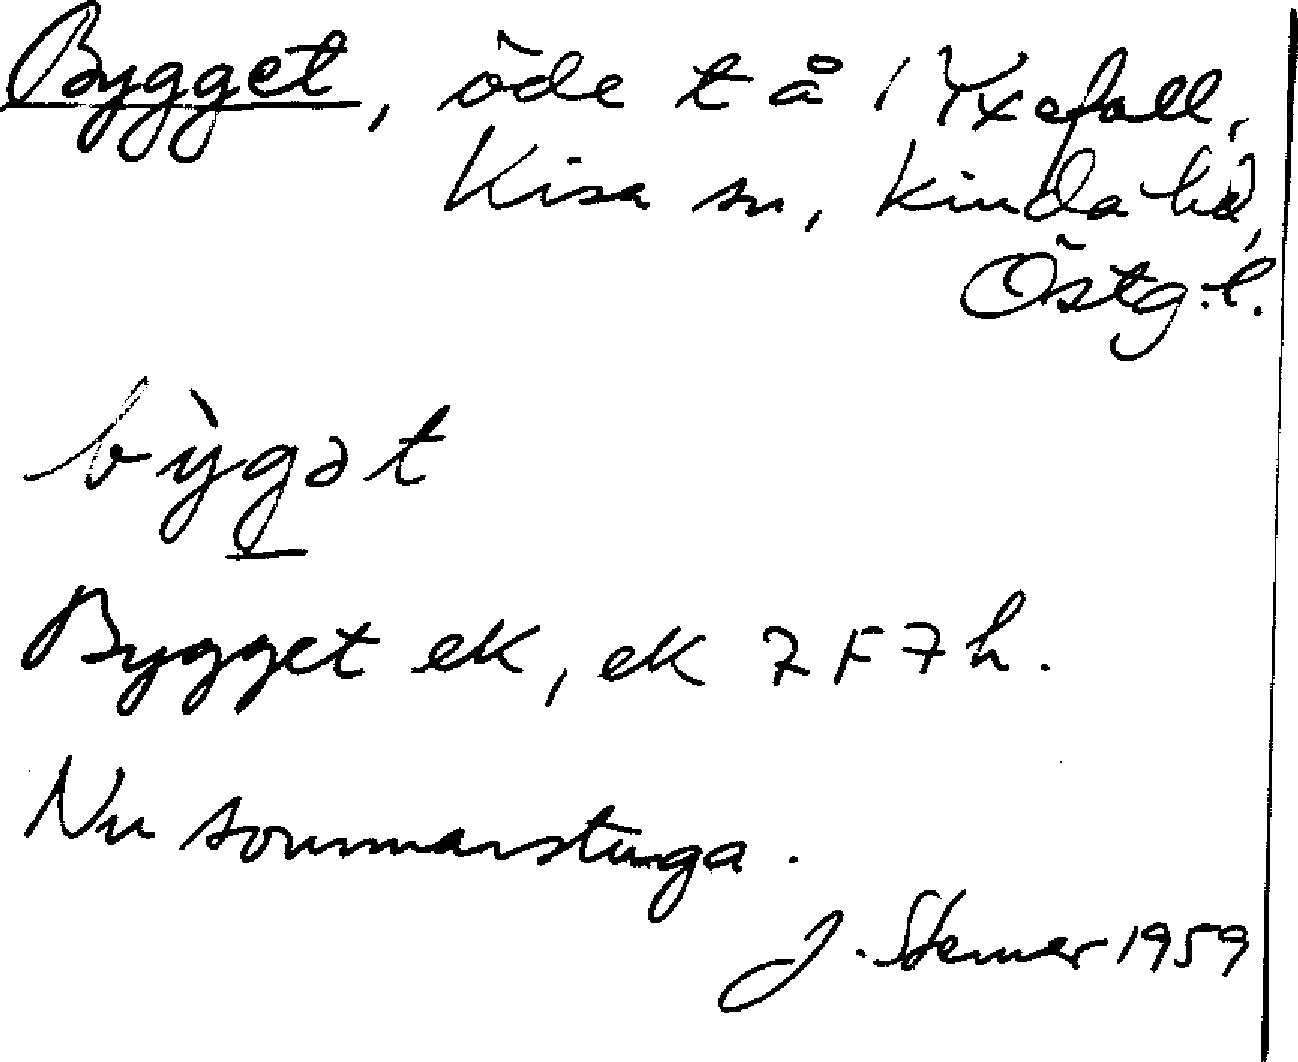 Bygget, öde t å 1 Yxefall,
Kisa sn, Kinda hd,
Östg.l.
bỳgət
Bygget ek, ek 7 F 7 h.
Nu sommarstuga.
J. Stemer 1959